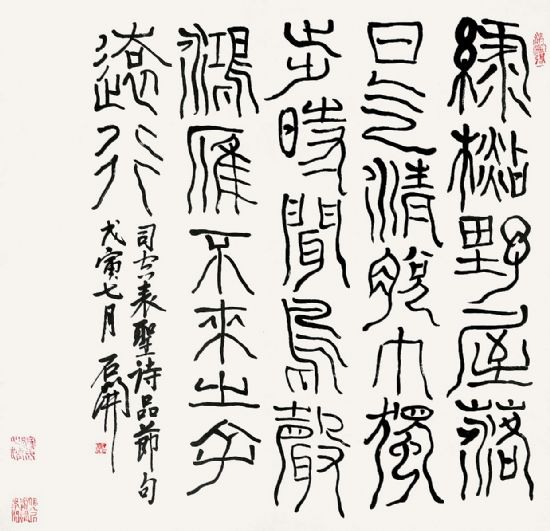 綠檆野屋落
日气清脫巾獨
步時聞鳥聲
鴻雁不來之子
遠行
司空表聖詩品節句
戊寅七月 石開